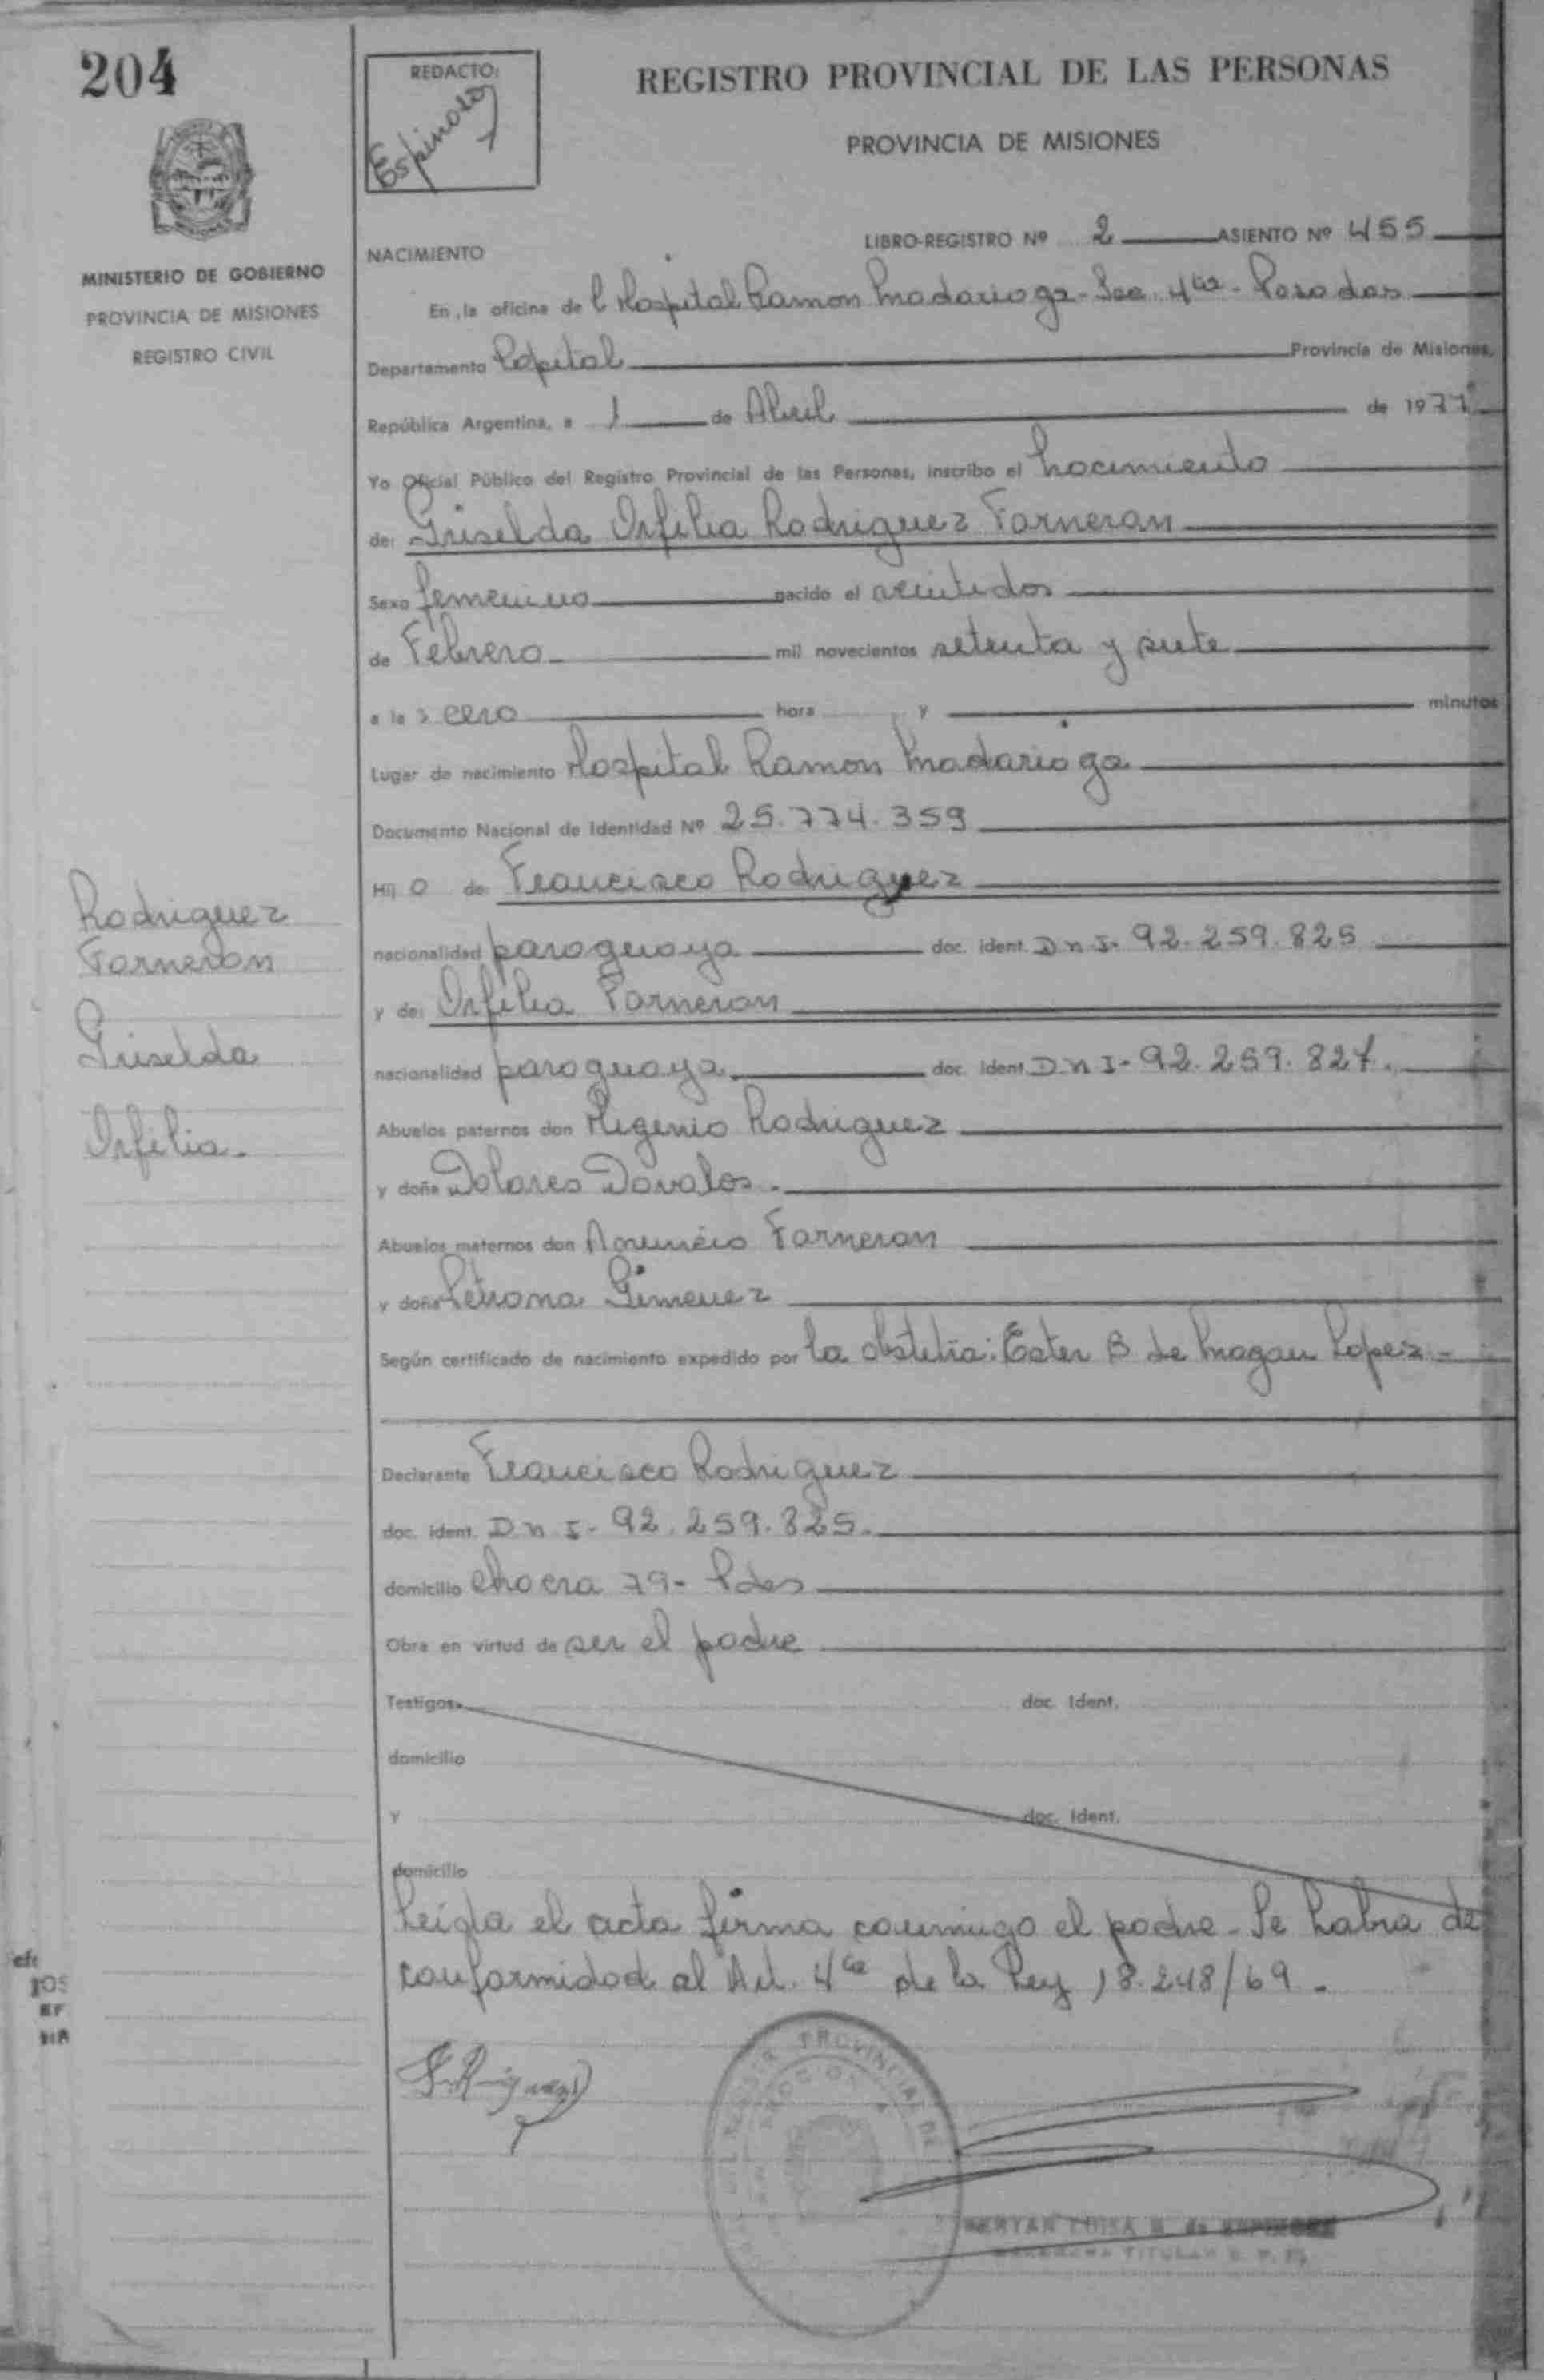 204
REDACTO:
Espinoza
REGISTRO PROVINCIAL DE LAS PERSONAS
PROVINCIA DE MISIONES
MINISTERIO DE GOBIERNO
PROVINCIA DE MISIONES
REGISTRO CIVIL
NACIMIENTO
LIBRO-REGISTRO Nº 2 ASIENTO Nº 455
En la oficina de l Hospital Ramon Madariaga - Sec. 4ta - Posadas
Departamento Capital Provincia de Misiones,
República Argentina, a 1 de Abril de 1977
Yo Oficial Público del Registro Provincial de las Personas, inscribo el nacimiento
de: Griselda Orfilia Rodriguez Farneron
Sexo femenino nacido el veintidos
de Febrero mil novecientos setenta y siete
a la s cero hora y minutos
Lugar de nacimiento Hospital Ramon Madariaga
Documento Nacional de Identidad Nº 25.774.359
Hij o de: Francisco Rodriguez
nacionalidad paraguaya doc. ident. D n I- 92.259.825
y de: Orfilia Farneron
nacionalidad paraguaya doc. ident. D n I- 92.259.827.
Abuelos paternos don Higenio Rodriguez
y doña Dolores Dovalos.
Abuelos maternos don Farneron
y doña Petrona Gimenez
Según certificado de nacimiento expedido por la obstetria: Ester B de Magan Lopez-
Declarante Francisco Rodriguez
doc. ident. D n I- 92.259.825.
domicilio chacra 79- Pdas
Obra en virtud de ser el padre
Testigos: doc. Ident.
domicilio
y doc. Ident.
domicilio
Leida el acta firma conmigo el padre - Se labra de
conformidad al Art. 4ta de la Ley 18.248/69.
Rodriguez
Farneron
Griselda
Orfilia.
PROVINCIAL DE
LUISA
TITULAR